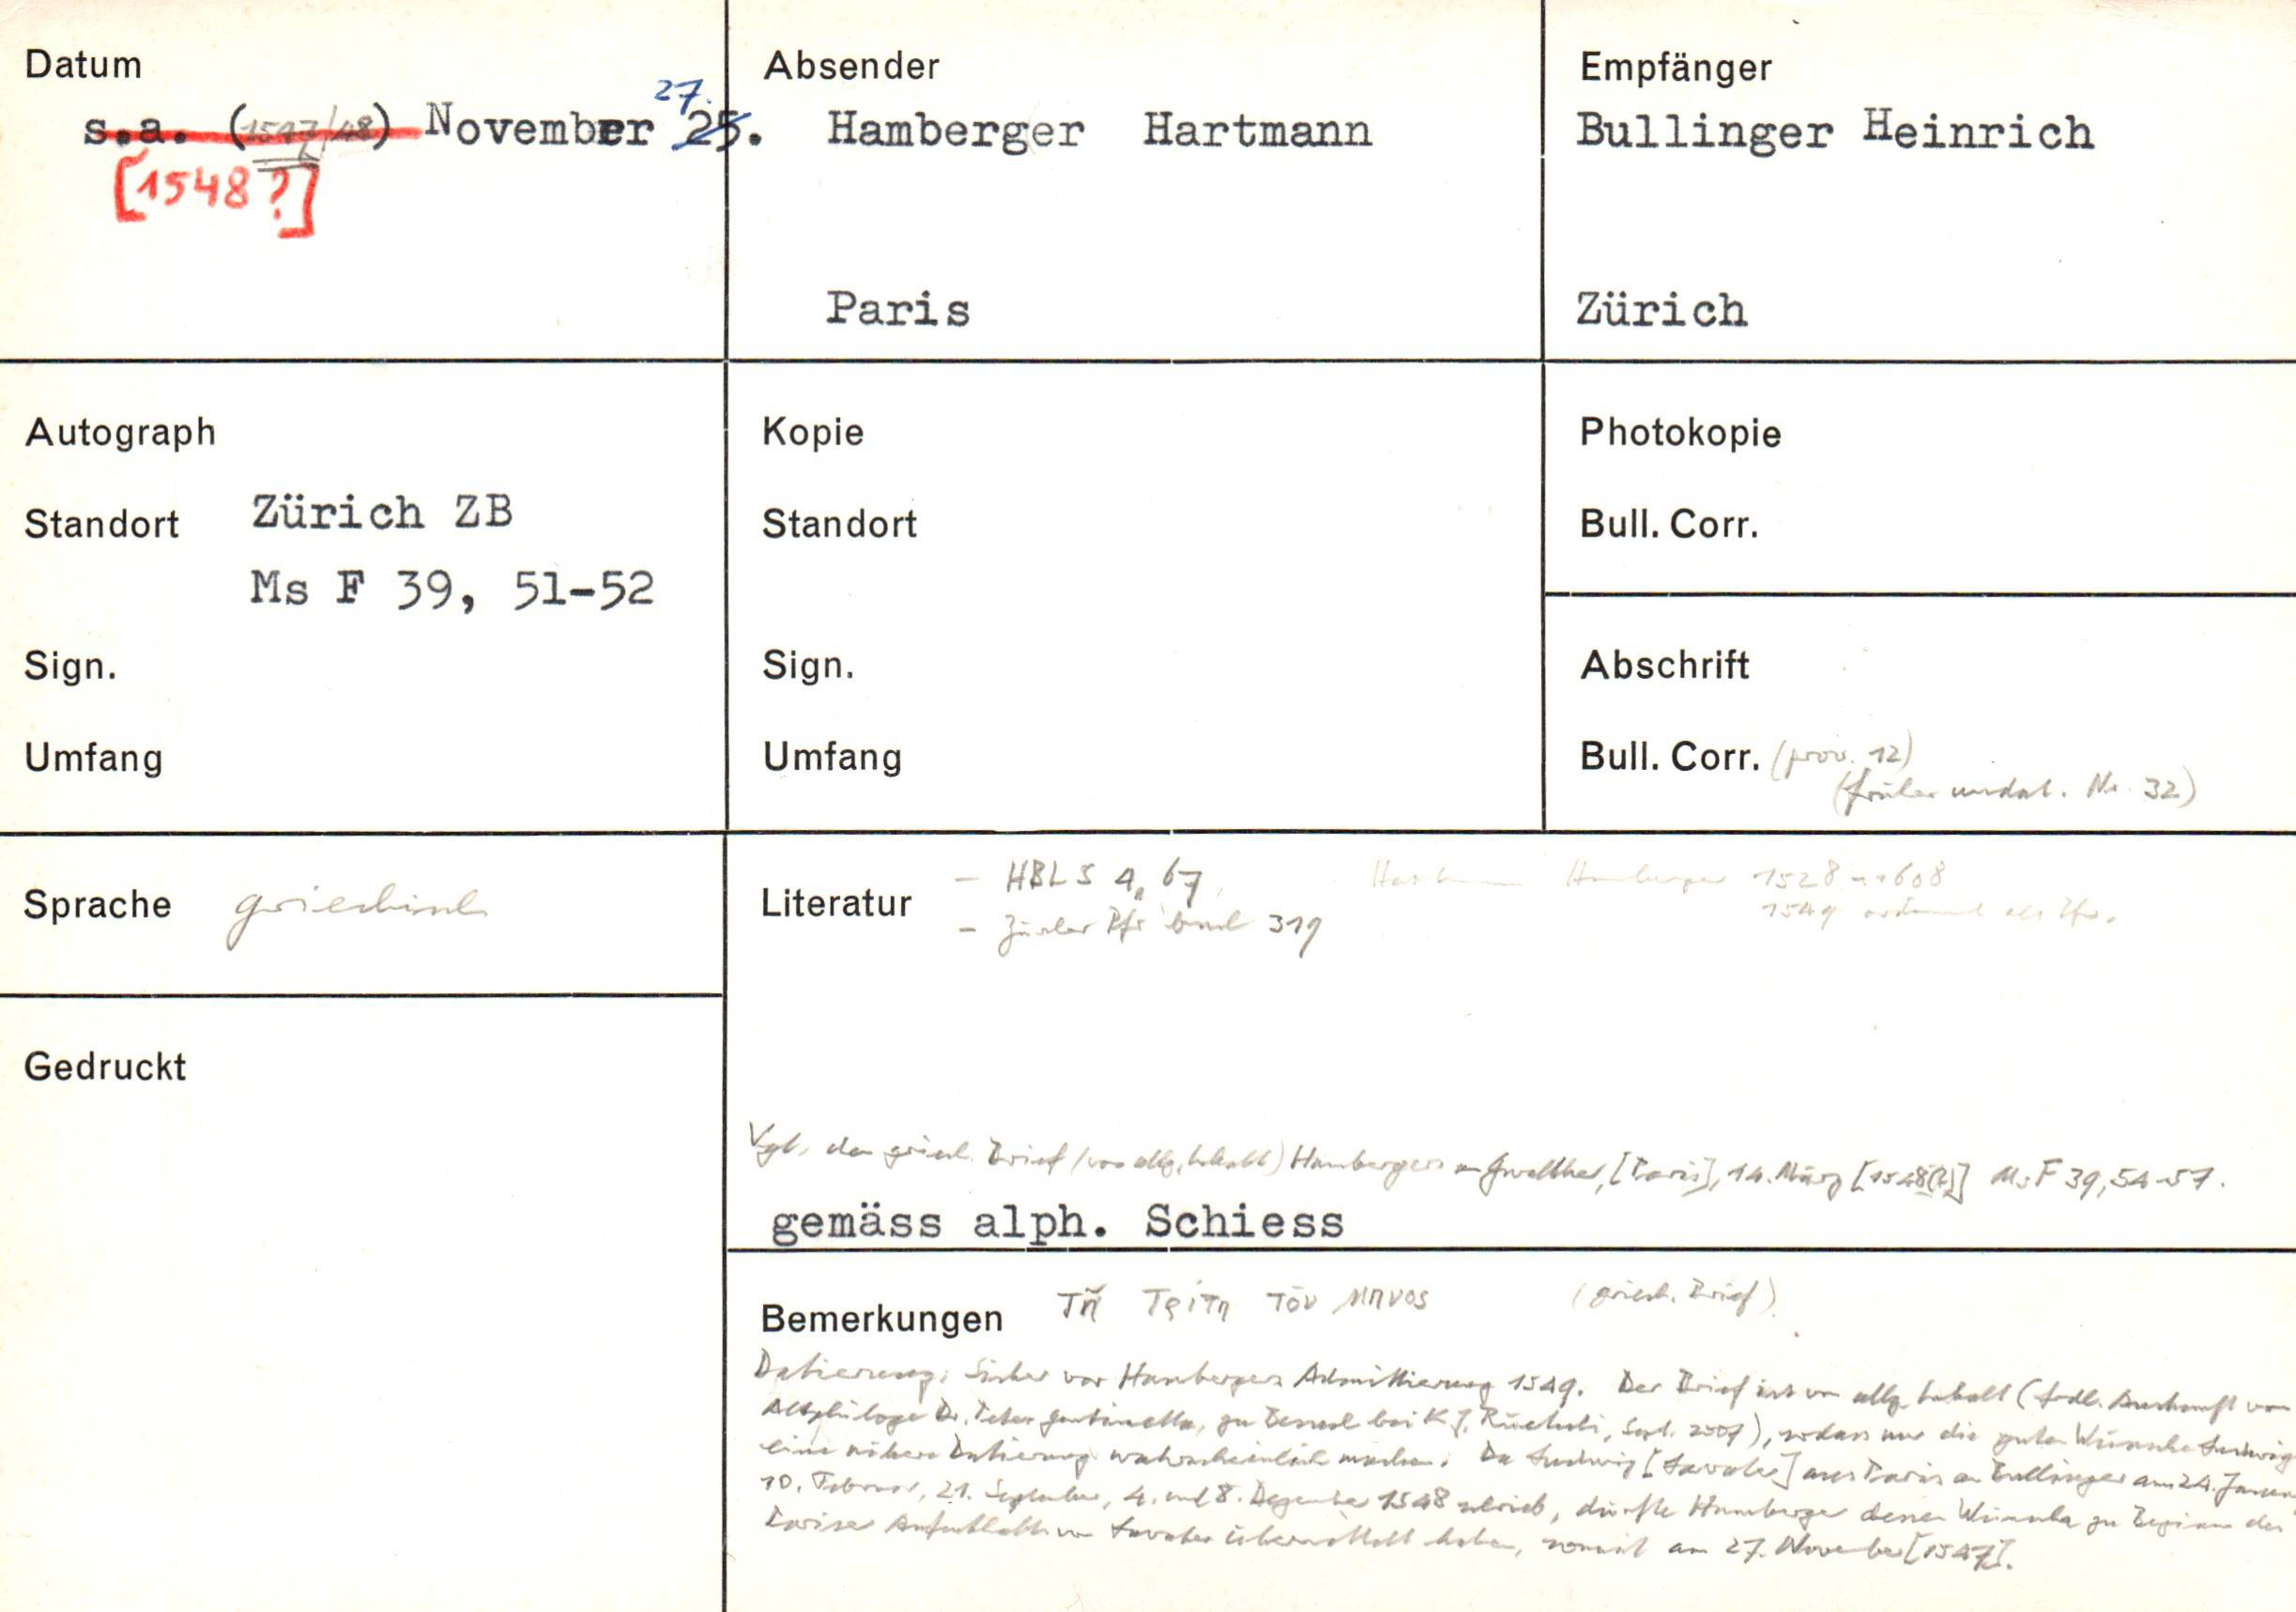 Datum
s.a. (1547/48) November 25.
27.
[1548?]
Absender
Hamberger Hartmann
Paris
Empfänger
Bullinger Heinrich
Zürich
Autograph
Standort Zürich ZB
Ms F 39, 51-52
Sign.
Umfang
Kopie
Standort
Sign.
Umfang
Photokopie
Bull. Corr.
Abschrift
Bull. Corr. (prov. 12)
(früher undat. Nr. 32)
Sprache griechisch
Gedruckt
Literatur
- HBLS 4, 67
- Zürcher Pfr buch 319
Hartmann Hamberger 1528-1608
1549 ordiniert als Pfr.
Vgl. den griech. Brief (von allg. Inhalt) Hambergers an Gwalther, [Paris], 14. März [1548(?)] Ms F 39, 54-57.
gemäss alph. Schiess
Bemerkungen Τῆ Τρίτη τόυ μηνος (griech. Brief)
Datierung: Sicher vor Hambergers Admittierung 1549. Der Brief ist von allg. Inhalt (frdl. Auskunft von
Altphilologe Dr. Peter zu Besuch bei K. J. Rüetschi, Sept. 2007), sodass nur die guten Wünsche Ludwigs
eine nähere Datierung wahrscheinlich machen: Da Ludwig [Lavater] aus Paris an Bullinger am 24. Januar
10. Februar, 21. September, 4. und 8. Dezember 1548 schrieb, dürfte Hamberger dessen Wünsche zu Beginn des
Pariser Aufenthalts von Lavater übermittelt haben, somit am 27. November [1547].